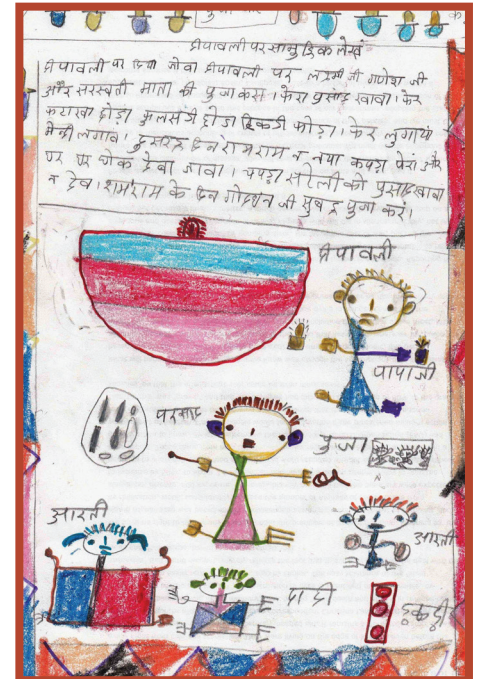 दीपावली पर सामुहिक लेख
दीपावली पर दिया जोवा दीपावली पर लक्ष्मी जी गणेश जी
और सरस्वती माता की पुजा करा। फेरा प्रसाद खावा। फेर
फटाखा छोड़ा फुलझड़ी छोड़ा टिकड़ी फोड़ा। फेर लुगाया
मेन्दी लगाव। दुसरा दिन रामराम न नया कपड़ा पेरां और
घर घर धोक देवा जावा।
न देव। रामराम के दिन गोरधन जी पुजा करां।
दीपावली
पापाजी
परसाद
पुजा
आरती
आरती
दादी